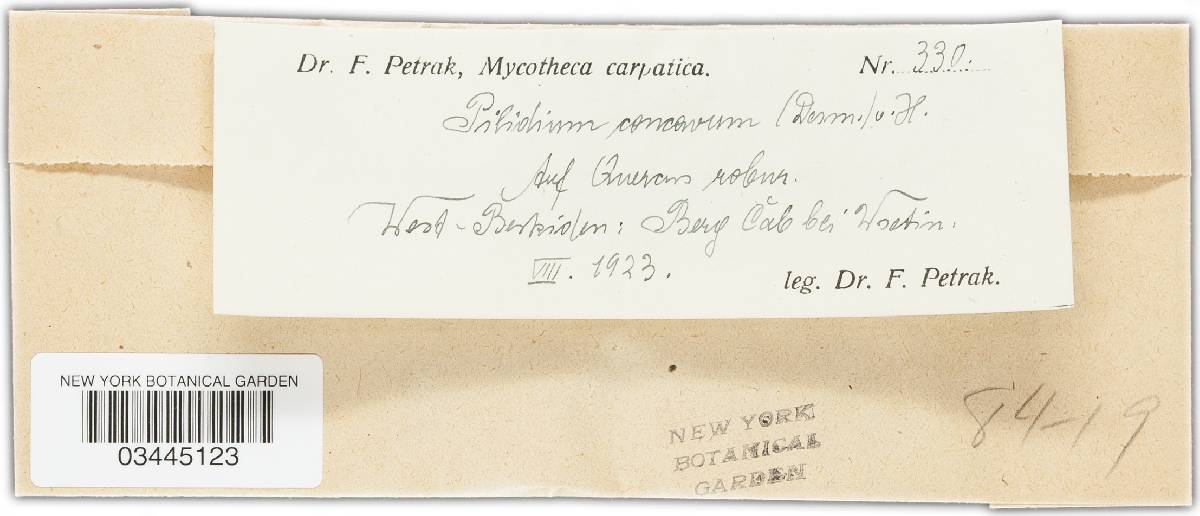 Dr. F. Petrak, Mycotheca carpatica. Nr. 330.
Pilidium concavum (Desm.) v. H.
Auf Quercus robur.
West-Beskiden: Berg Čab bei Wsetin.
VIII. 1923.
leg. Dr. F. Petrak.
NEW YORK BOTANICAL GARDEN
03445123
NEW YORK
BOTANICAL
GARDEN
84-19